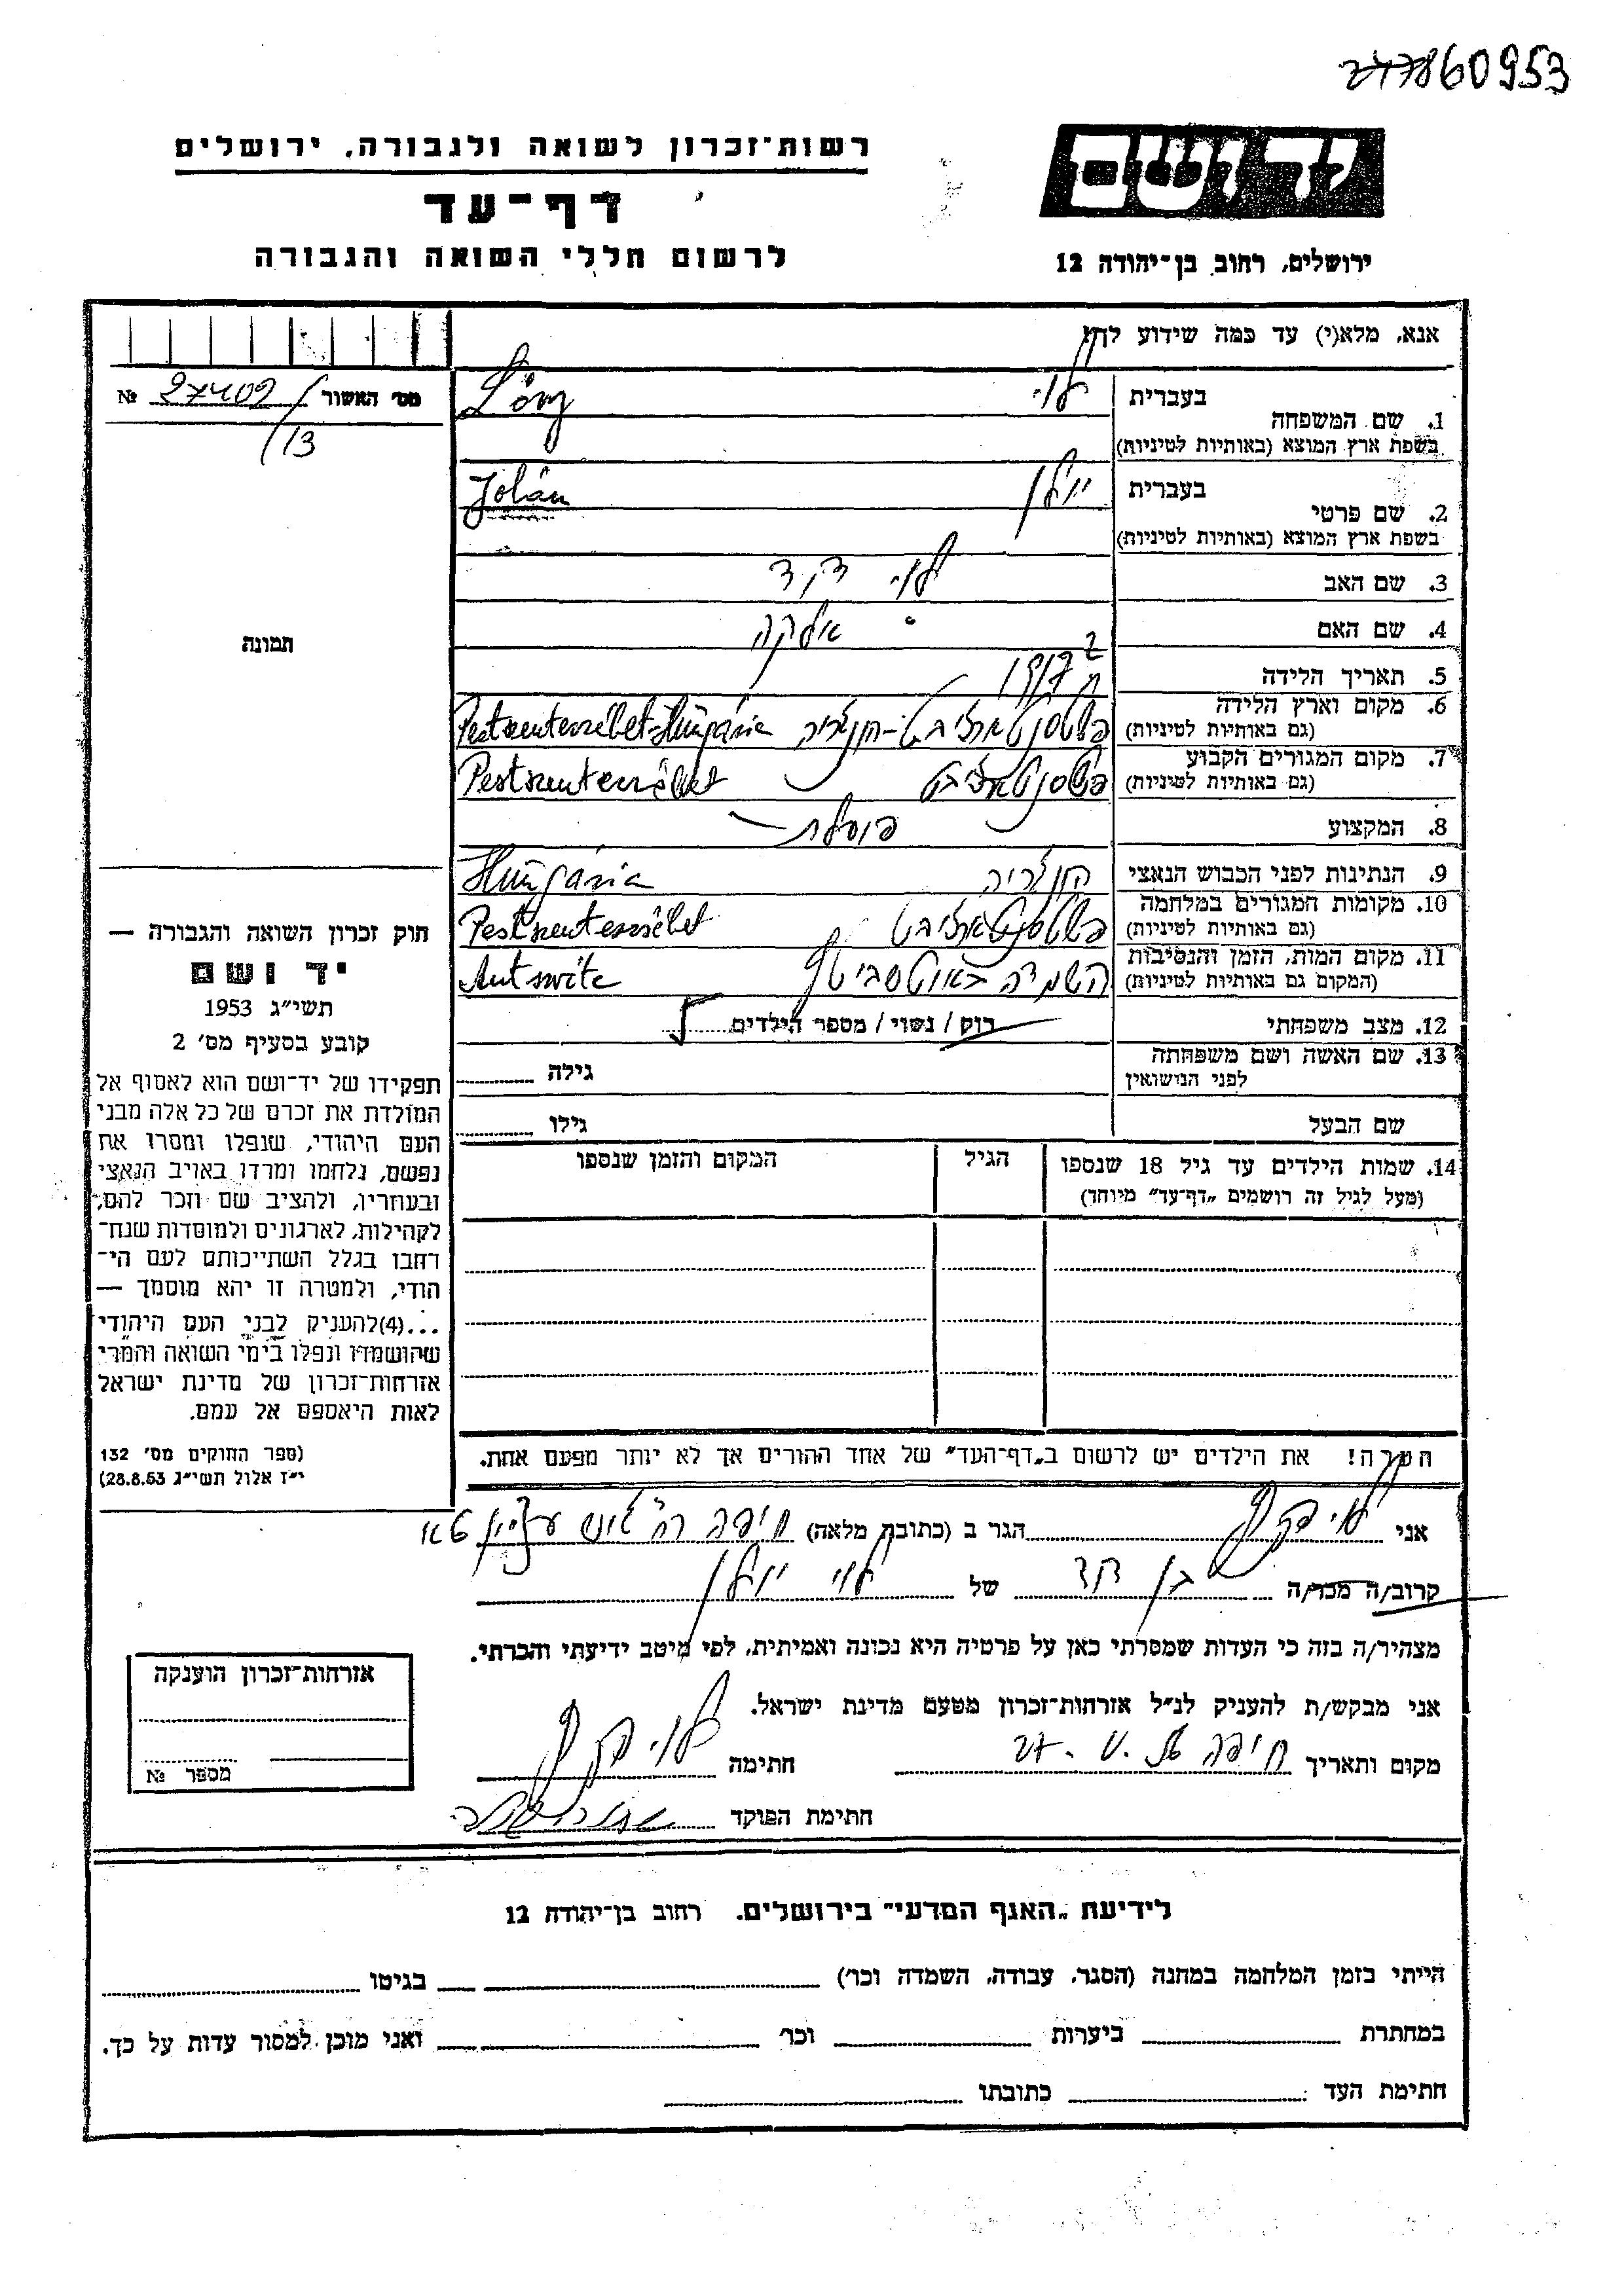 60953
יד ושם
ירושלים, רחוב בן-יהודה 12
רשות-זכרון לשואה ולגבורה, ירושלים
דף-עד
לרשום חללי השואה והגבורה
אנא, מלא(י) עד כמה שידוע לך!
מס׳ האשור № 27402/
/13
תמונה
1. שם המשפחה
בעברית לוי
בשפת ארץ המוצא (באותיות לטיניות) Lőny
2. שם פרטי
בעברית יולן
בשפת ארץ המוצא (באותיות לטיניות) Jolán
3. שם האב לוי דוד
4. שם האם
5. תאריך הלידה
6. מקום וארץ הלידה
(גם באותיות לטיניות) Pestszenterzsébet-Hungária
7. מקום המגורים הקבוע
(גם באותיות לטיניות) Pestszenterzsébet
8. המקצוע פועלת
9. הנתינות לפני הכבוש הנאצי הונגריה Hungária
10. מקומות המגורים במלחמה
(גם באותיות לטיניות) Pestszenterzsébet
11. מקום המות, הזמן והנסיבות
(המקום גם באותיות לטיניות) השמדה באוטשביטץ Autswitc
12. מצב משפחתי רווק / נשוי / מספר הילדים
13. שם האשה ושם משפחתה
לפני הנישואין
גילה
שם הבעל
גילו
14. שמות הילדים עד גיל 18 שנספו
(מעל לגיל זה רושמים „דף-עד״ מיוחד)
הגיל
המקום והזמן שנספו
הערה! את הילדים יש לרשום ב„דף-העד״ של אחד ההורים אך לא יותר מפעם אחת.
חוק זכרון השואה והגבורה —
יד ושם
תשי״ג 1953
קובע בסעיף מס׳ 2
תפקידו של יד-ושם הוא לאסוף אל
המולדת את זכרם של כל אלה מבני
העם היהודי, שנפלו ומסרו את
נפשם, נלחמו ומרדו באויב הנאצי
ובעוזריו, ולהציב שם וזכר להם,
לקהילות, לארגונים ולמוסדות שנח-
רחבו בגלל השתייכותם לעם הי-
הודי, ולמטרה זו יהא מוסמך —
...(4)להעניק לבני העם היהודי
שהושמדו ונפלו בימי השואה והמרי
אזרחות-זכרון של מדינת ישראל
לאות היאספם אל עמם.
(ספר החוקים מס׳ 132
י״ז אלול תשי״ג 28.8.53)
אני לוי הגר ב (כתובת מלאה) חיפה
קרוב/ה מכר/ה בן דוד של לוי יולן
מצהיר/ה בזה כי העדות שמסרתי כאן על פרטיה היא נכונה ואמיתית, לפי מיטב ידיעתי והכרתי.
אני מבקש/ת להעניק לנ״ל אזרחות-זכרון מטעם מדינת ישראל.
מקום ותאריך חיפה חתימה לוי
חתימת הפוקד
אזרחות-זכרון הוענקה
מספר №
לידיעת „האגף המדעי״ בירושלים. רחוב בן-יהודה 12
הייתי בזמן המלחמה במחנה (הסגר, עבודה, השמדה וכו׳) בגיטו
במחתרת ביערות וכו׳ ואני מוכן למסור עדות על כך.
חתימת העד כתובתו